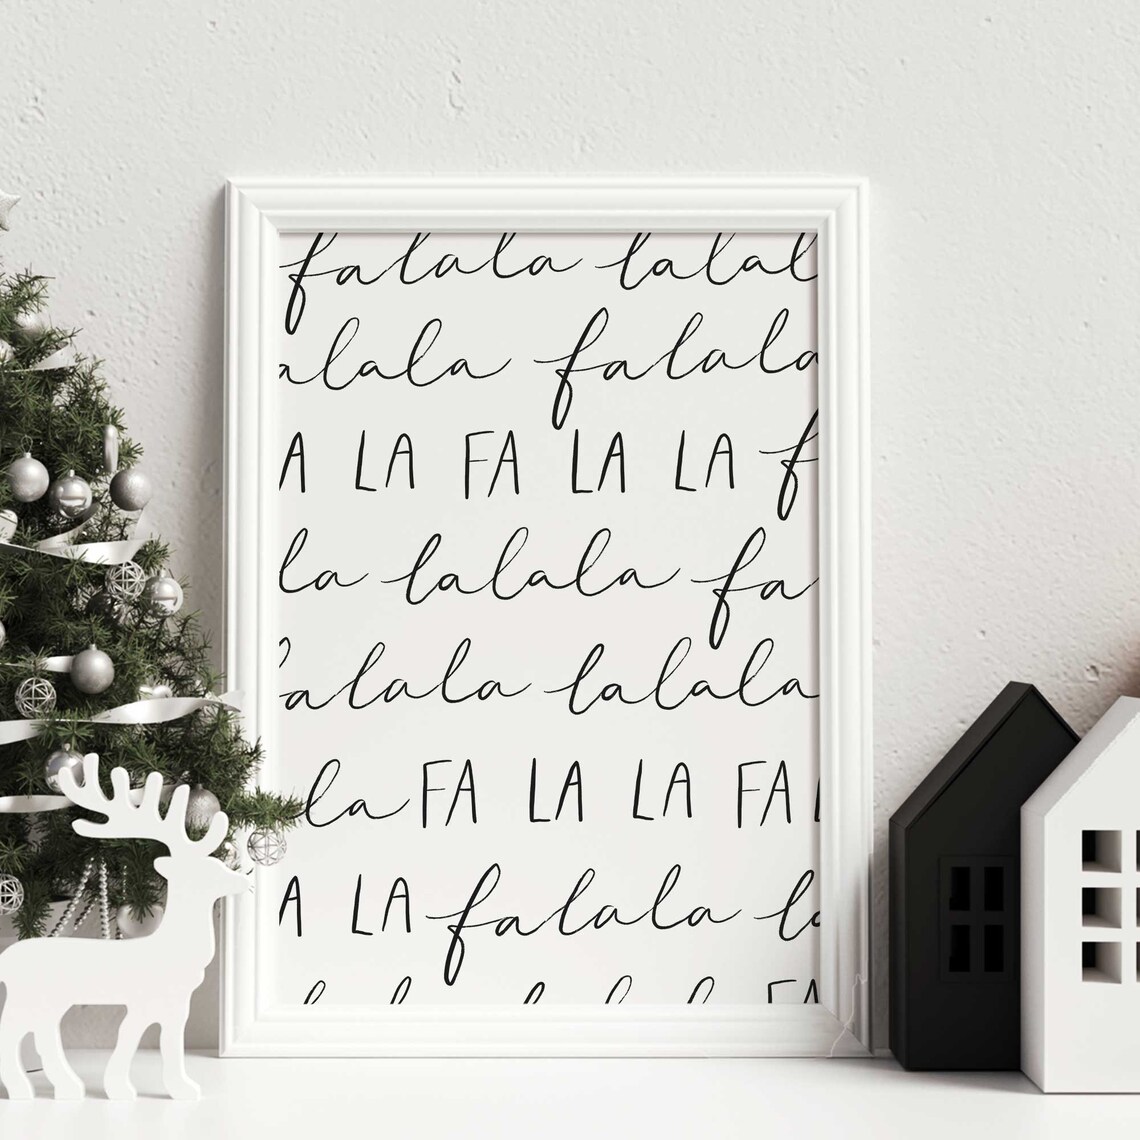 falala lalal
alala falala
A LA FA LA LA f
la lalala fa
alala lalala
la FA LA LA FA
A LA falala la
FA